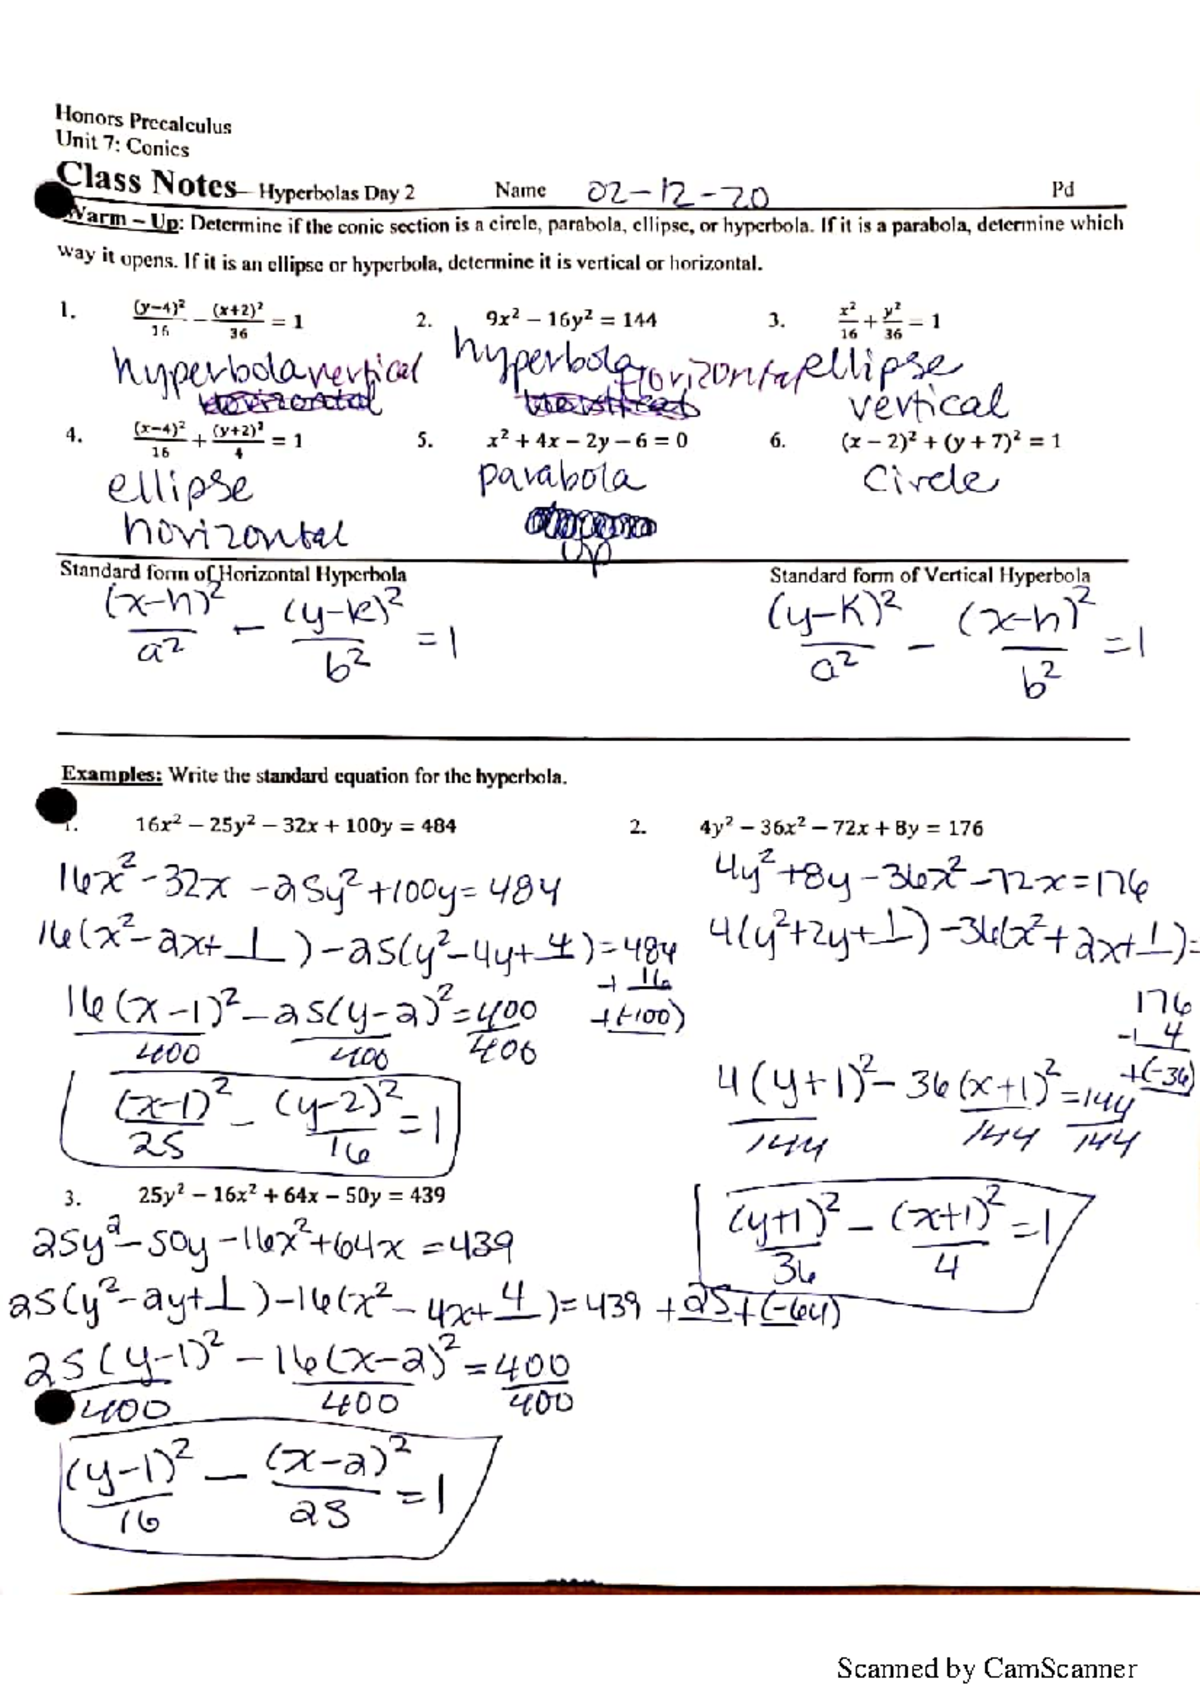 Honors Precalculus
Unit 7: Conics
Class Notes – Hyperbolas Day 2 Name 02-12-20 Pd
Warm – Up: Determine if the conic section is a circle, parabola, ellipse, or hyperbola. If it is a parabola, determine which
way it opens. If it is an ellipse or hyperbola, determine it is vertical or horizontal.
1. (y−4)²/16 − (x+2)²/36 = 1 2. 9x² − 16y² = 144 3. x²/16 + y²/36 = 1
hyperbola vertical hyperbola horizontal ellipse
vertical
4. (x−4)²/16 + (y+2)²/4 = 1 5. x² + 4x − 2y − 6 = 0 6. (x − 2)² + (y + 7)² = 1
ellipse parabola circle
horizontal
up
Standard form of Horizontal Hyperbola Standard form of Vertical Hyperbola
(x-h)²/a² - (y-k)²/b² = 1 (y-k)²/a² - (x-h)²/b² = 1
Examples: Write the standard equation for the hyperbola.
1. 16x² − 25y² − 32x + 100y = 484 2. 4y² − 36x² − 72x + 8y = 176
16x² - 32x - 25y² + 100y = 484
16(x² - 2x + 1) - 25(y² - 4y + 4) = 484
+ 16
+(-100)
16(x-1)²/400 - 25(y-2)²/400 = 400/400
(x-1)²/25 - (y-2)²/16 = 1
4y² + 8y - 36x² - 72x = 176
4(y² + 2y + 1) - 36(x² + 2x + 1) =
176
+ 4
+(-36)
4(y+1)²/144 - 36(x+1)²/144 = 144/144
(y+1)²/36 - (x+1)²/4 = 1
3. 25y² − 16x² + 64x − 50y = 439
25y² - 50y - 16x² + 64x = 439
25(y² - 2y + 1) - 16(x² - 4x + 4) = 439 + 25 + (-64)
25(y-1)²/400 - 16(x-2)²/400 = 400/400
(y-1)²/16 - (x-2)²/25 = 1
Scanned by CamScanner